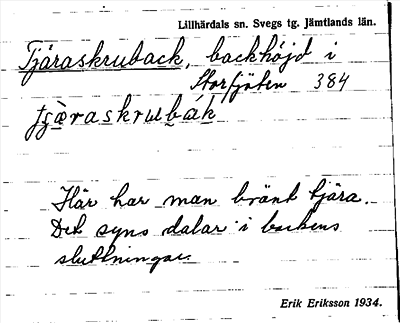 Lillhärdals sn. Svegs tg. Jämtlands län.
Tjäraskruback, backhöjd i
Storfjäten 384
tʃæ̀raskrubák
Här har man bränt tjära.
Det syns dalar i backens
sluttningar.
Erik Eriksson 1934.